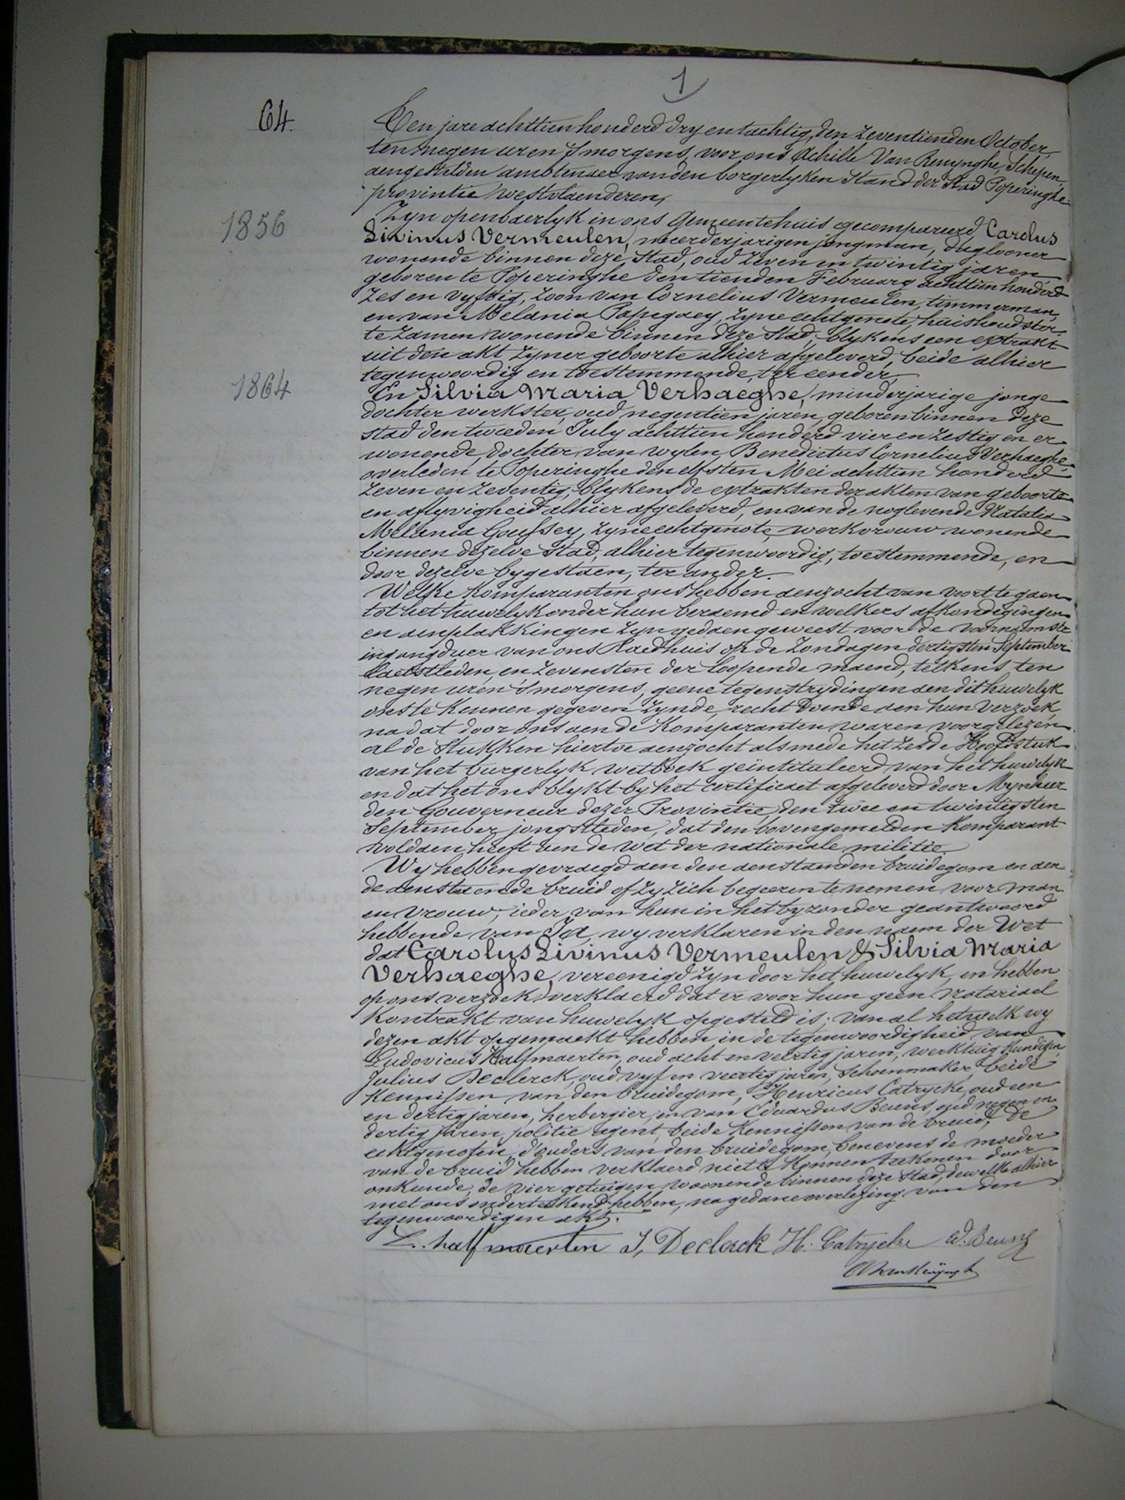 1
64.
Een jare achttien honderd dry en tachtig, den zeventienden October,
ten negen uren 's morgens, voor ons Achille Van Renynghe, Schepen
aengestelden ambtenaer van den borgerlyken Stand der Stad Poperinghe
provintie Westvlaenderen,
Zyn openbaerlyk in ons Gemeentehuis gecompareerd Carolus
1856
Livinus Vermeulen, meerderjarigen jongman, daglooner
wonende binnen deze Stad, oud zeven en twintig jaren
geboren te Poperinghe den tienden February achttien honderd
zes en vyftig, zoon van Cornelius Vermeulen, timmerman,
en van Melania Papegaey, zyne echtgenote, huishoudster
te zamen wonende binnen deze Stad, blykens een extrakt
uit den akt zyner geboorte alhier afgeleverd, beide alhier
tegenwoordig en toestemmende, ter eender,
1864
En Silvia Maria Verhaeghe, minderjarige jonge
dochter werkster, oud negentien jaren, geboren binnen deze
stad den tweeden July achttien honderd vier en zestig en er
wonende dochter van wylen Benedictus Cornelius Verhaeghe
overleden te Poperinghe den elfsten Mei achttien honderd
zeven en zeventig, blykens de extrakten der akten van geboorte
en aflyvigheid alhier afgeleverd, en van de noglevende Natalia
Melania Goussey, zyne echtgenote, werkvrouw wonende
binnen dezelve Stad, alhier tegenwoordig, toestemmende, en
door dezelve bygestaen, ter ander.
Welke komparanten ons hebben aenzocht van voort te gaen
tot het huwelyk onder hun beraemd en welkers afkondigingen
en aenplakkingen zyn gedaen geweest voor de vannemste
ingangdeur van ons Raedhuis op de Zondagen dertigsten September
laetstleden, en zevensten der loopende maend, telkens ten
negen uren 's morgens, geene tegenstrydingen aen dit huwelyk
ons te kennen gegeven zynde, recht doende aen hun verzoek
na dat door ons aen de komparanten waren voorgelezen
al de Stukken hiertoe aenzocht alsmede het zesde Hoofdstuk
van het burgerlyk wetboek geintituleerd van het huwelyk
en dat het ons blykt by het certificaet afgeleverd door Mynheer
den Gouverneur dezer Provintie, den twee en twintigsten
September jongstleden, dat den bovengemelden komparant
voldaen heeft aen de wet der nationale militie.
Wy hebben gevraegd aen den aenstaenden bruidegom en aen
de aenstaende bruid of zy zich begeeren te nemen voor man
en vrouw, ieder van hun in het byzonder geantwoord
hebbende van Ja, wy verklaren in den naem der Wet
dat Carolus Livinus Vermeulen & Silvia Maria
Verhaeghe, vereenigd zyn door het huwelyk, en hebben
op ons verzoek verklaerd dat er voor hun geen notariael
kontrakt van huwelyk opgesteld is; van al hetwelk wy
dezen akt opgemaekt hebben in de tegenwoordigheid van
Ludovicus Halfmaerten, oud acht en veertig jaren, werktuigkundigen,
Julius Declerck, oud vyf en veertig jaren, schoenmaker, beide
kennissen van den bruidegom, Henricus Catrycke, oud een
en dertig jaren, herbergier, en van Eduardus Beuns oud negen en
dertig jaren, politie agent, beide kennissen van de bruid, De
echtgenoten, d'ouders van den bruidegom, benevens de moeder
van de bruid hebben verklaerd niet te konnen teekenen door
onkunde, de vier getuigen, woonende binnen deze Stad, dewelke alhier
met ons onderteekend hebben, na gedane verlezing van den
tegenwoordigen akt.
L. halfmaerten J, Declerck H. Catrycke Ed. Beuns
AVanRenynghe